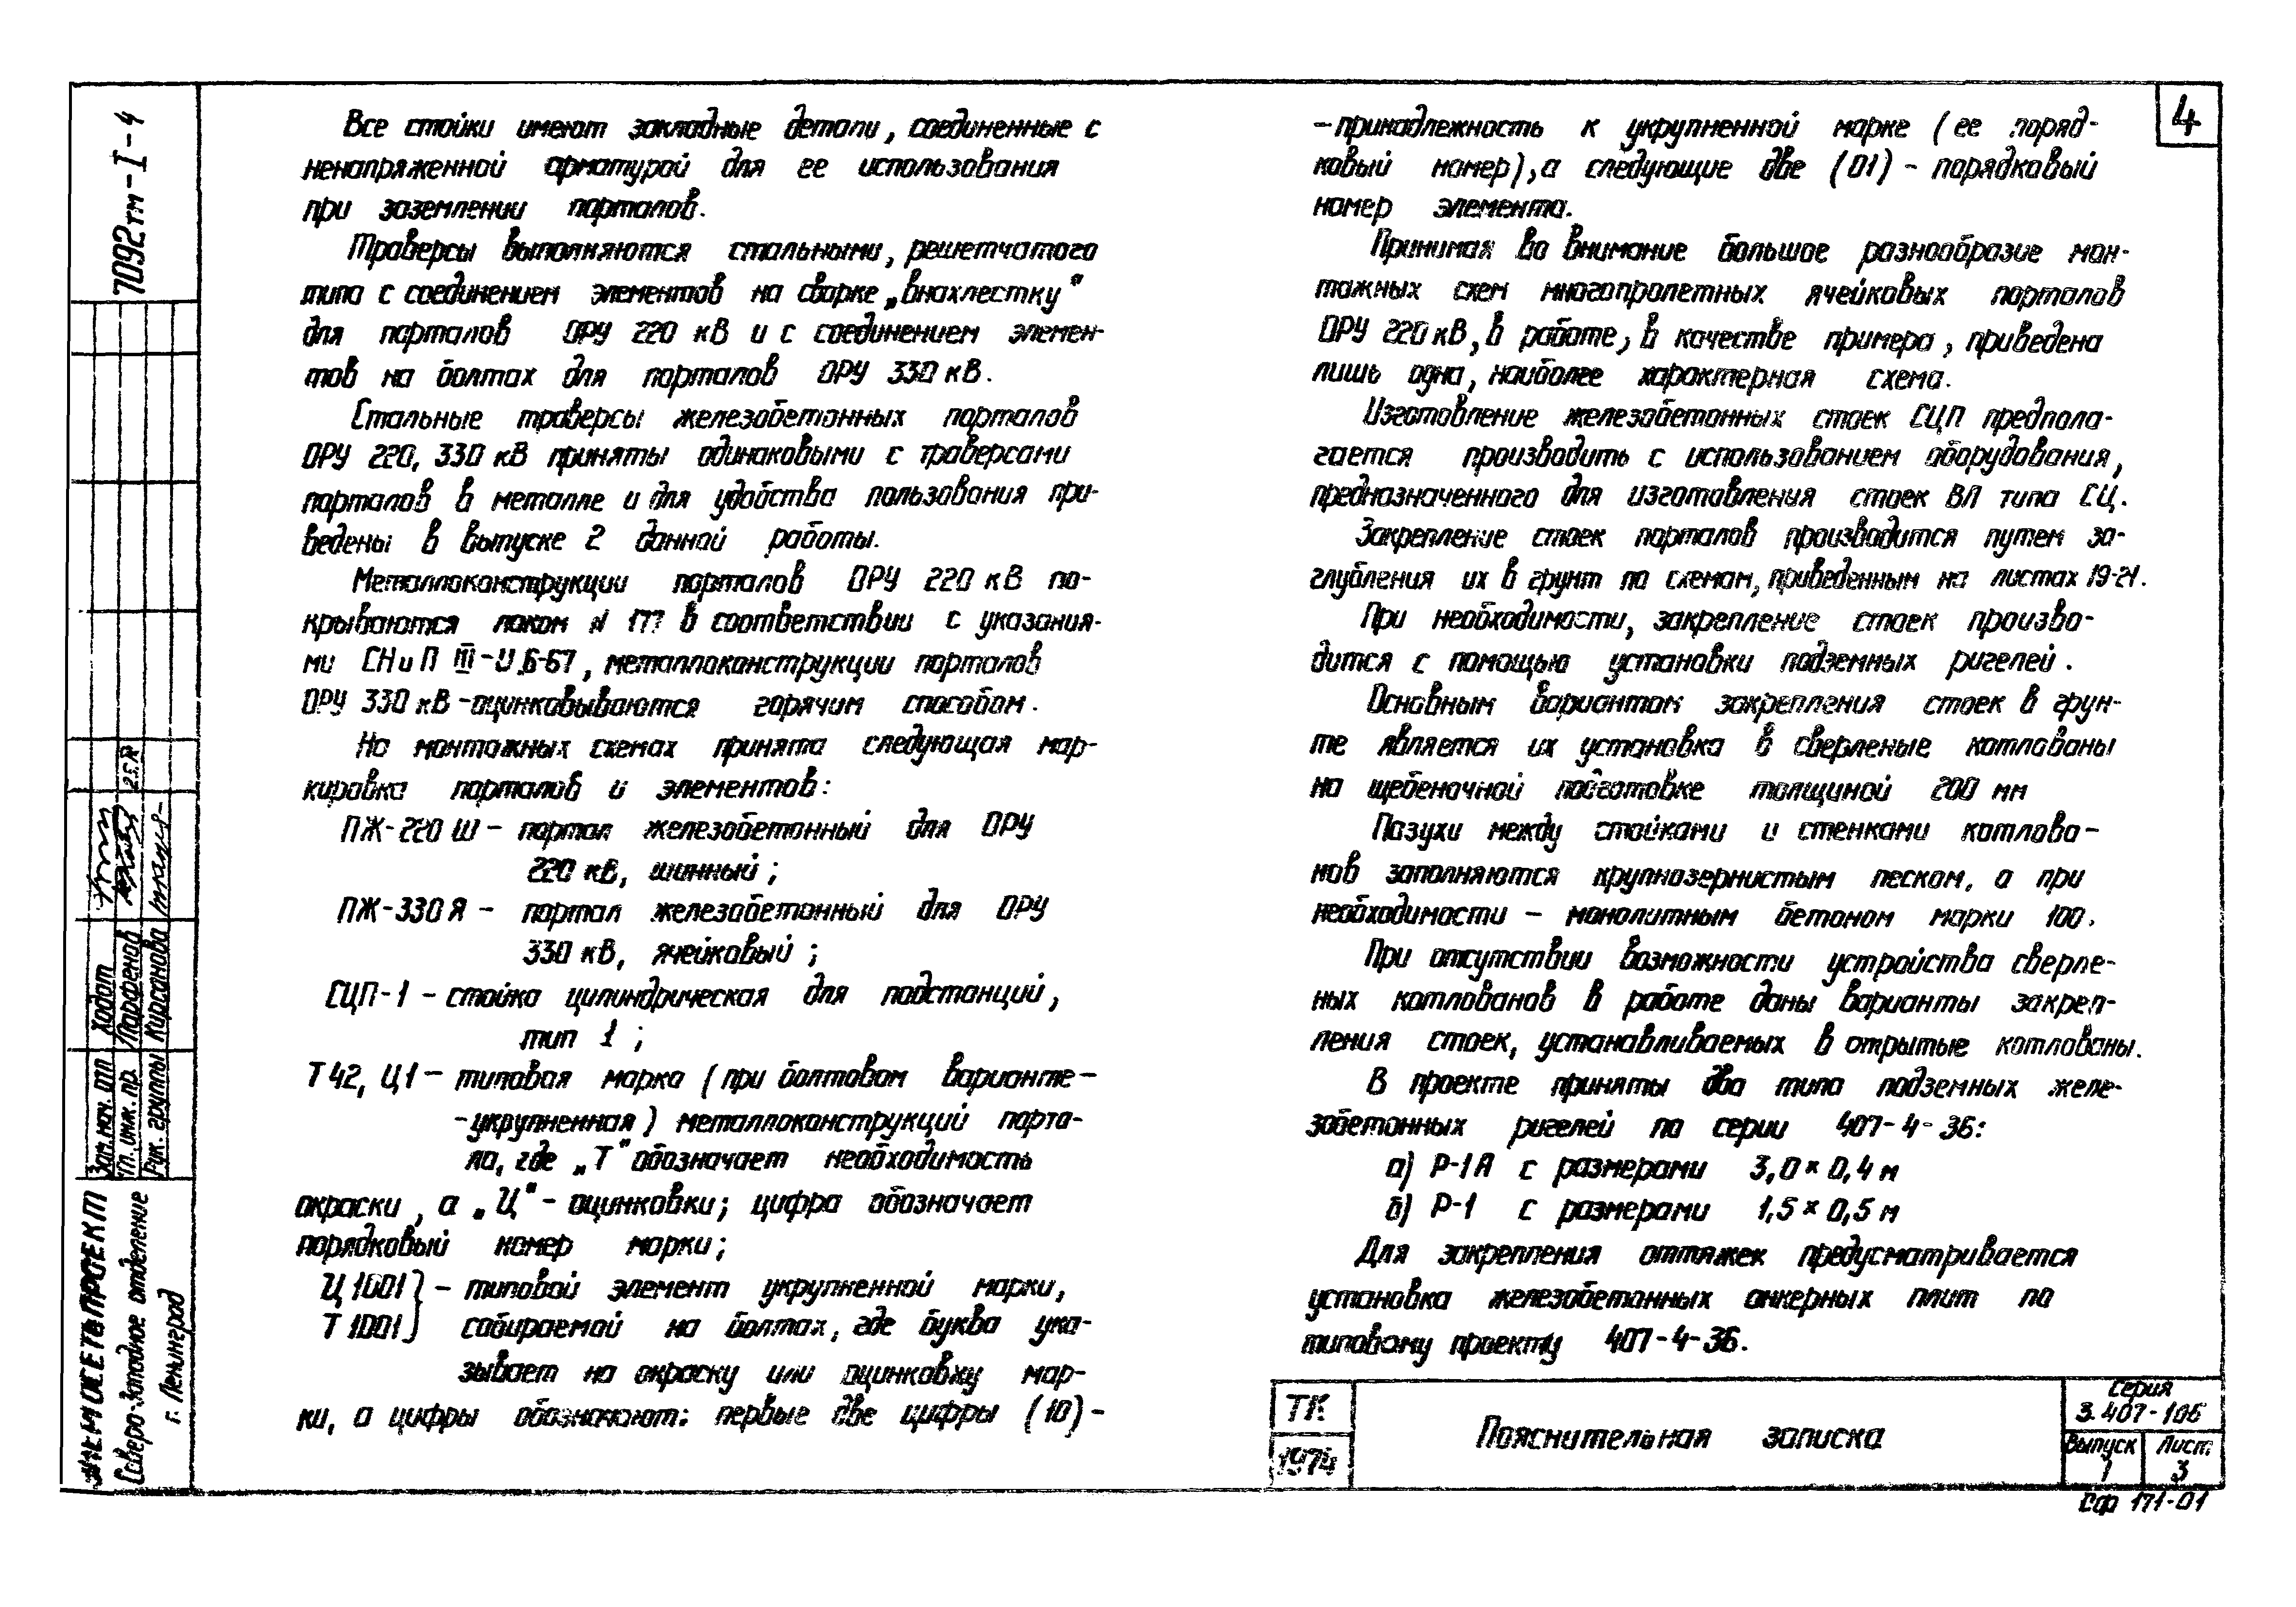 Все стойки имеют закладные детали, соединенные с
ненапряженной арматурой для ее использования
при заземлении порталов.
Траверсы выполняются стальными, решетчатого
типа с соединением элементов на сварке „внахлестку"
для порталов ОРУ 220 кВ и с соединением элемен-
тов на болтах для порталов ОРУ 330 кВ.
Стальные траверсы железобетонных порталов
ОРУ 220, 330 кВ приняты одинаковыми с траверсами
порталов в металле и для удобства пользования при-
ведены в выпуске 2 данной работы.
Металлоконструкции порталов ОРУ 220 кВ по-
крываются лаком № 177 в соответствии с указания-
ми СНиП III-И.6-67, металлоконструкции порталов
ОРУ 330 кВ - оцинковываются горячим способом.
На монтажных схемах принята следующая мар-
кировка порталов и элементов:
ПЖ-220 Ш - портал железобетонный для ОРУ
220 кВ, шинный;
ПЖ-330 Я - портал железобетонный для ОРУ
330 кВ, ячейковый;
СЦП-1 - стойка цилиндрическая для подстанций,
тип 1;
Т42, Ц1 - типовая марка (при болтовом варианте -
- укрупненная) металлоконструкций порта-
ла, где „Т" обозначает необходимость
окраски, а „Ц" - оцинковки; цифра обозначает
порядковый номер марки;
Ц 1001 } - типовой элемент укрупненной марки,
Т 1001 } собираемой на болтах, где буква ука-
зывает на окраску или оцинковку мар-
ки, а цифры обозначают: первые две цифры (10) -
- принадлежность к укрупненной марке (ее поряд-
ковый номер), а следующие две (01) - порядковый
номер элемента.
Принимая во внимание большое разнообразие мон-
тажных схем многопролетных ячейковых порталов
ОРУ 220 кВ, в работе, в качестве примера, приведена
лишь одна, наиболее характерная схема.
Изготовление железобетонных стоек СЦП предпола-
гается производить с использованием оборудования,
предназначенного для изготовления стоек ВЛ типа СЦ.
Закрепление стоек порталов производится путем за-
глубления их в грунт по схемам, приведенным на листах 19-21.
При необходимости, закрепление стоек произво-
дится с помощью установки подземных ригелей.
Основным вариантом закрепления стоек в грун-
те является их установка в сверленые котлованы
на щебеночной подготовке толщиной 200 мм
Пазухи между стойками и стенками котлова-
нов заполняются крупнозернистым песком, а при
необходимости - монолитным бетоном марки 100.
При отсутствии возможности устройства сверле-
ных котлованов в работе даны варианты закреп-
ления стоек, устанавливаемых в открытые котлованы.
В проекте приняты два типа подземных желе-
зобетонных ригелей по серии 407-4-36:
а) Р-1А с размерами 3,0×0,4 м
б) Р-1 с размерами 1,5×0,5 м
Для закрепления оттяжек предусматривается
установка железобетонных анкерных плит по
типовому проекту 407-4-36.
4
ТК
1974
Пояснительная записка
Серия
3.407-106
Выпуск
1
Лист
3
Сф 171-01
7092тм-I-4
Зам. нач. отп Ходот
Гл. инж. пр. Парфенов
Рук. группы Кирсанова
Северо-Западное отделение
г. Ленинград